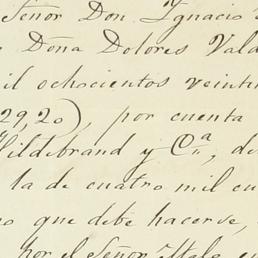 Señor Don Ignacio
Doña Dolores Vald
il ochocientos veinti
29,20), por cuenta
Hildebrand y Cª, de
la de cuatro mil cu
o que debe hacerse,
por el Señor Italo